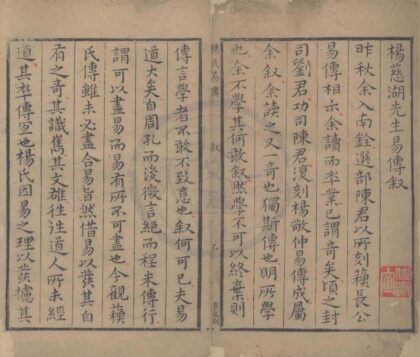 楊慈湖先生易傳叙
昨秋余入南銓選部陳君以所刻蘇長公
易傳相示余讀而卒業已謂奇矣頃之封
司劉君功司陳君復刻楊敬仲易傳成屬
余叙余讀之又一奇也獨斯傳也明所學
也余不學其何敢叙然學不可以終棄則
傳言學者不敢不致意也叙何可已夫易
道大矣自周孔而後微言絶而程朱傳行
謂可以盡易而易有所不可盡也今觀蘇
氏傳雖未必盡合易旨然借易以發其自
有之奇其識雋其文雄往往道人所未經
道其至傳宜也楊氏因易之理以發攄其
楊氏易傳
叙